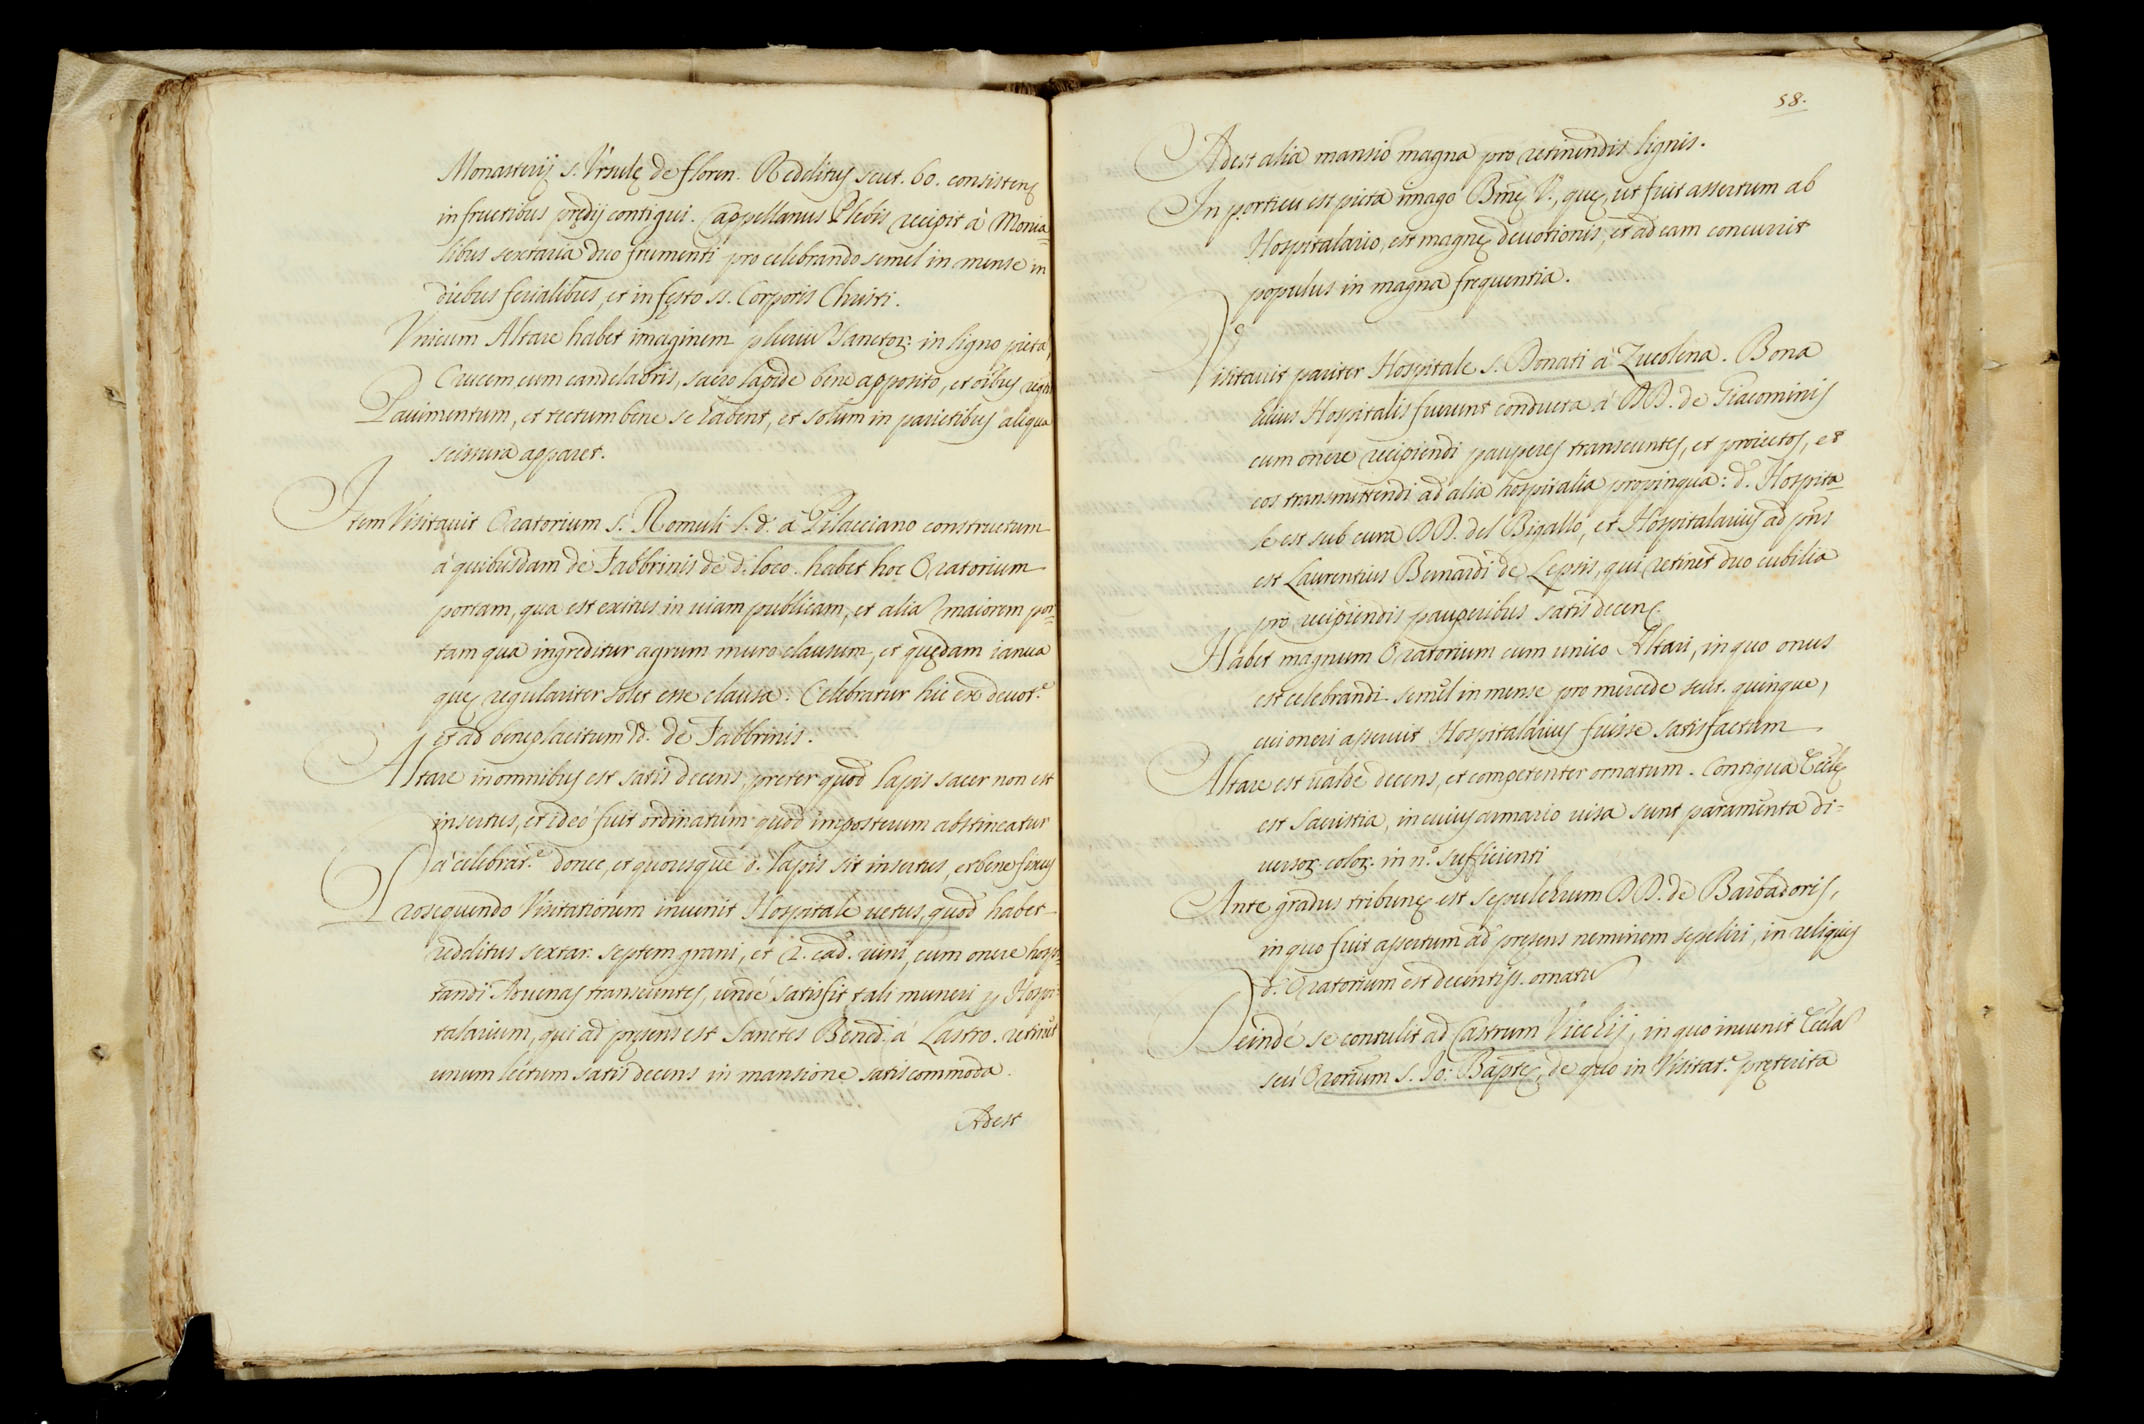 Monasterij s. Vrsulę de floren. Redditus scut. 60. consistens
in fructibus prędij contigui. Cappellanus Plebis recipit à Monia=
libus sextaria duo frumenti pro celebrando semel in mense in
diebus ferialibus, et in fęsto ss. Corporis Christi.
Vnicum Altare habet imaginem pluriu Sanctoꝝ in ligno picta,
Crucem cum candelabris, sacro lapide bene apposito, et oibus
Pauimentum, et tectum bene se habent, et solum in parietibus aliqua
scissura apparet.
Item Visitauit Oratorium s. Romuli s. d. à Pilacciano constructum
à quibusdam de Fabbrinis de d. loco. habet hoc Oratorium
portam, qua est exitus in uiam publicam, et alia maiorem por=
tam qua ingreditur agrum muro clausum, et quędam ianua
quę regulariter solet esse clausa. Celebratur hic ex deuot.e
et ad beneplacitum dd. de Fabbrinis.
Altare in omnibus est satis decens, preter quod lapis sacer non est
insertus, et ideò fuit ordinatum quod inposterum abstineatur
à celebrat.e donec, et quousque d. lapis sit insertus, et bene fixus
Prosequendo Visitationem inuenit Hospitale uetus, quod habet
redditus sextar. septem grani, et 2. cad. uini, cum onere hospi=
tandi Aduenas transeuntes, unde satisfit tali muneri p Hospi=
talarium, qui ad pręsens est Sanctes Bened. à Lastro. retinet
unum lectum satis decens in mansione satis commoda.
Adest
58.
Adest alia mansio magna pro retinendis lignis.
In porticu est picta imago Bmę V., quę, ut fuit assertum ab
Hospitalario, est magnę deuotionis, et ad eam concurrit
populus in magna frequentia.
Visitauit pariter Hospitale s. Donati à Zucolena. Bona
huius Hospitalis fuerunt conducta à DD. de Giacominis
cum onere recipiendi pauperes transeuntes, et proiectos, et
eos transmittendi ad alia hospitalia propinqua: d. Hospita=
le est sub cura DD. del Bigallo, et Hospitalarius ad pns
est Laurentius Bernardi de Leptis, qui retinet duo cubilia
pro recipiendis pauperibus satis decen.
Habet magnum Oratorium cum unico Altari, in quo onus
est celebrandi semel in mense pro mercede scut. quinque,
cui oneri asseruit Hospitalarius fuisse satisfactum
Altare est ualde decens, et competenter ornatum. Contigua Ecclę
est Sacristia, in cuius armario uisa sunt paramenta di=
uersoꝝ coloꝝ in n.o sufficienti
Ante gradus tribunę est sepulchrum DD. de Barbadoris,
in quo fuit assertum ad pręsens neminem sepeliri, in reliquis
d. Oratorium est decentiss. ornatu
Deinde se contulit ad Castrum Vicchij, in quo inuenit Eccla
seù Ororium s. Io: Baptę, de quo in Visitat.e pręterita